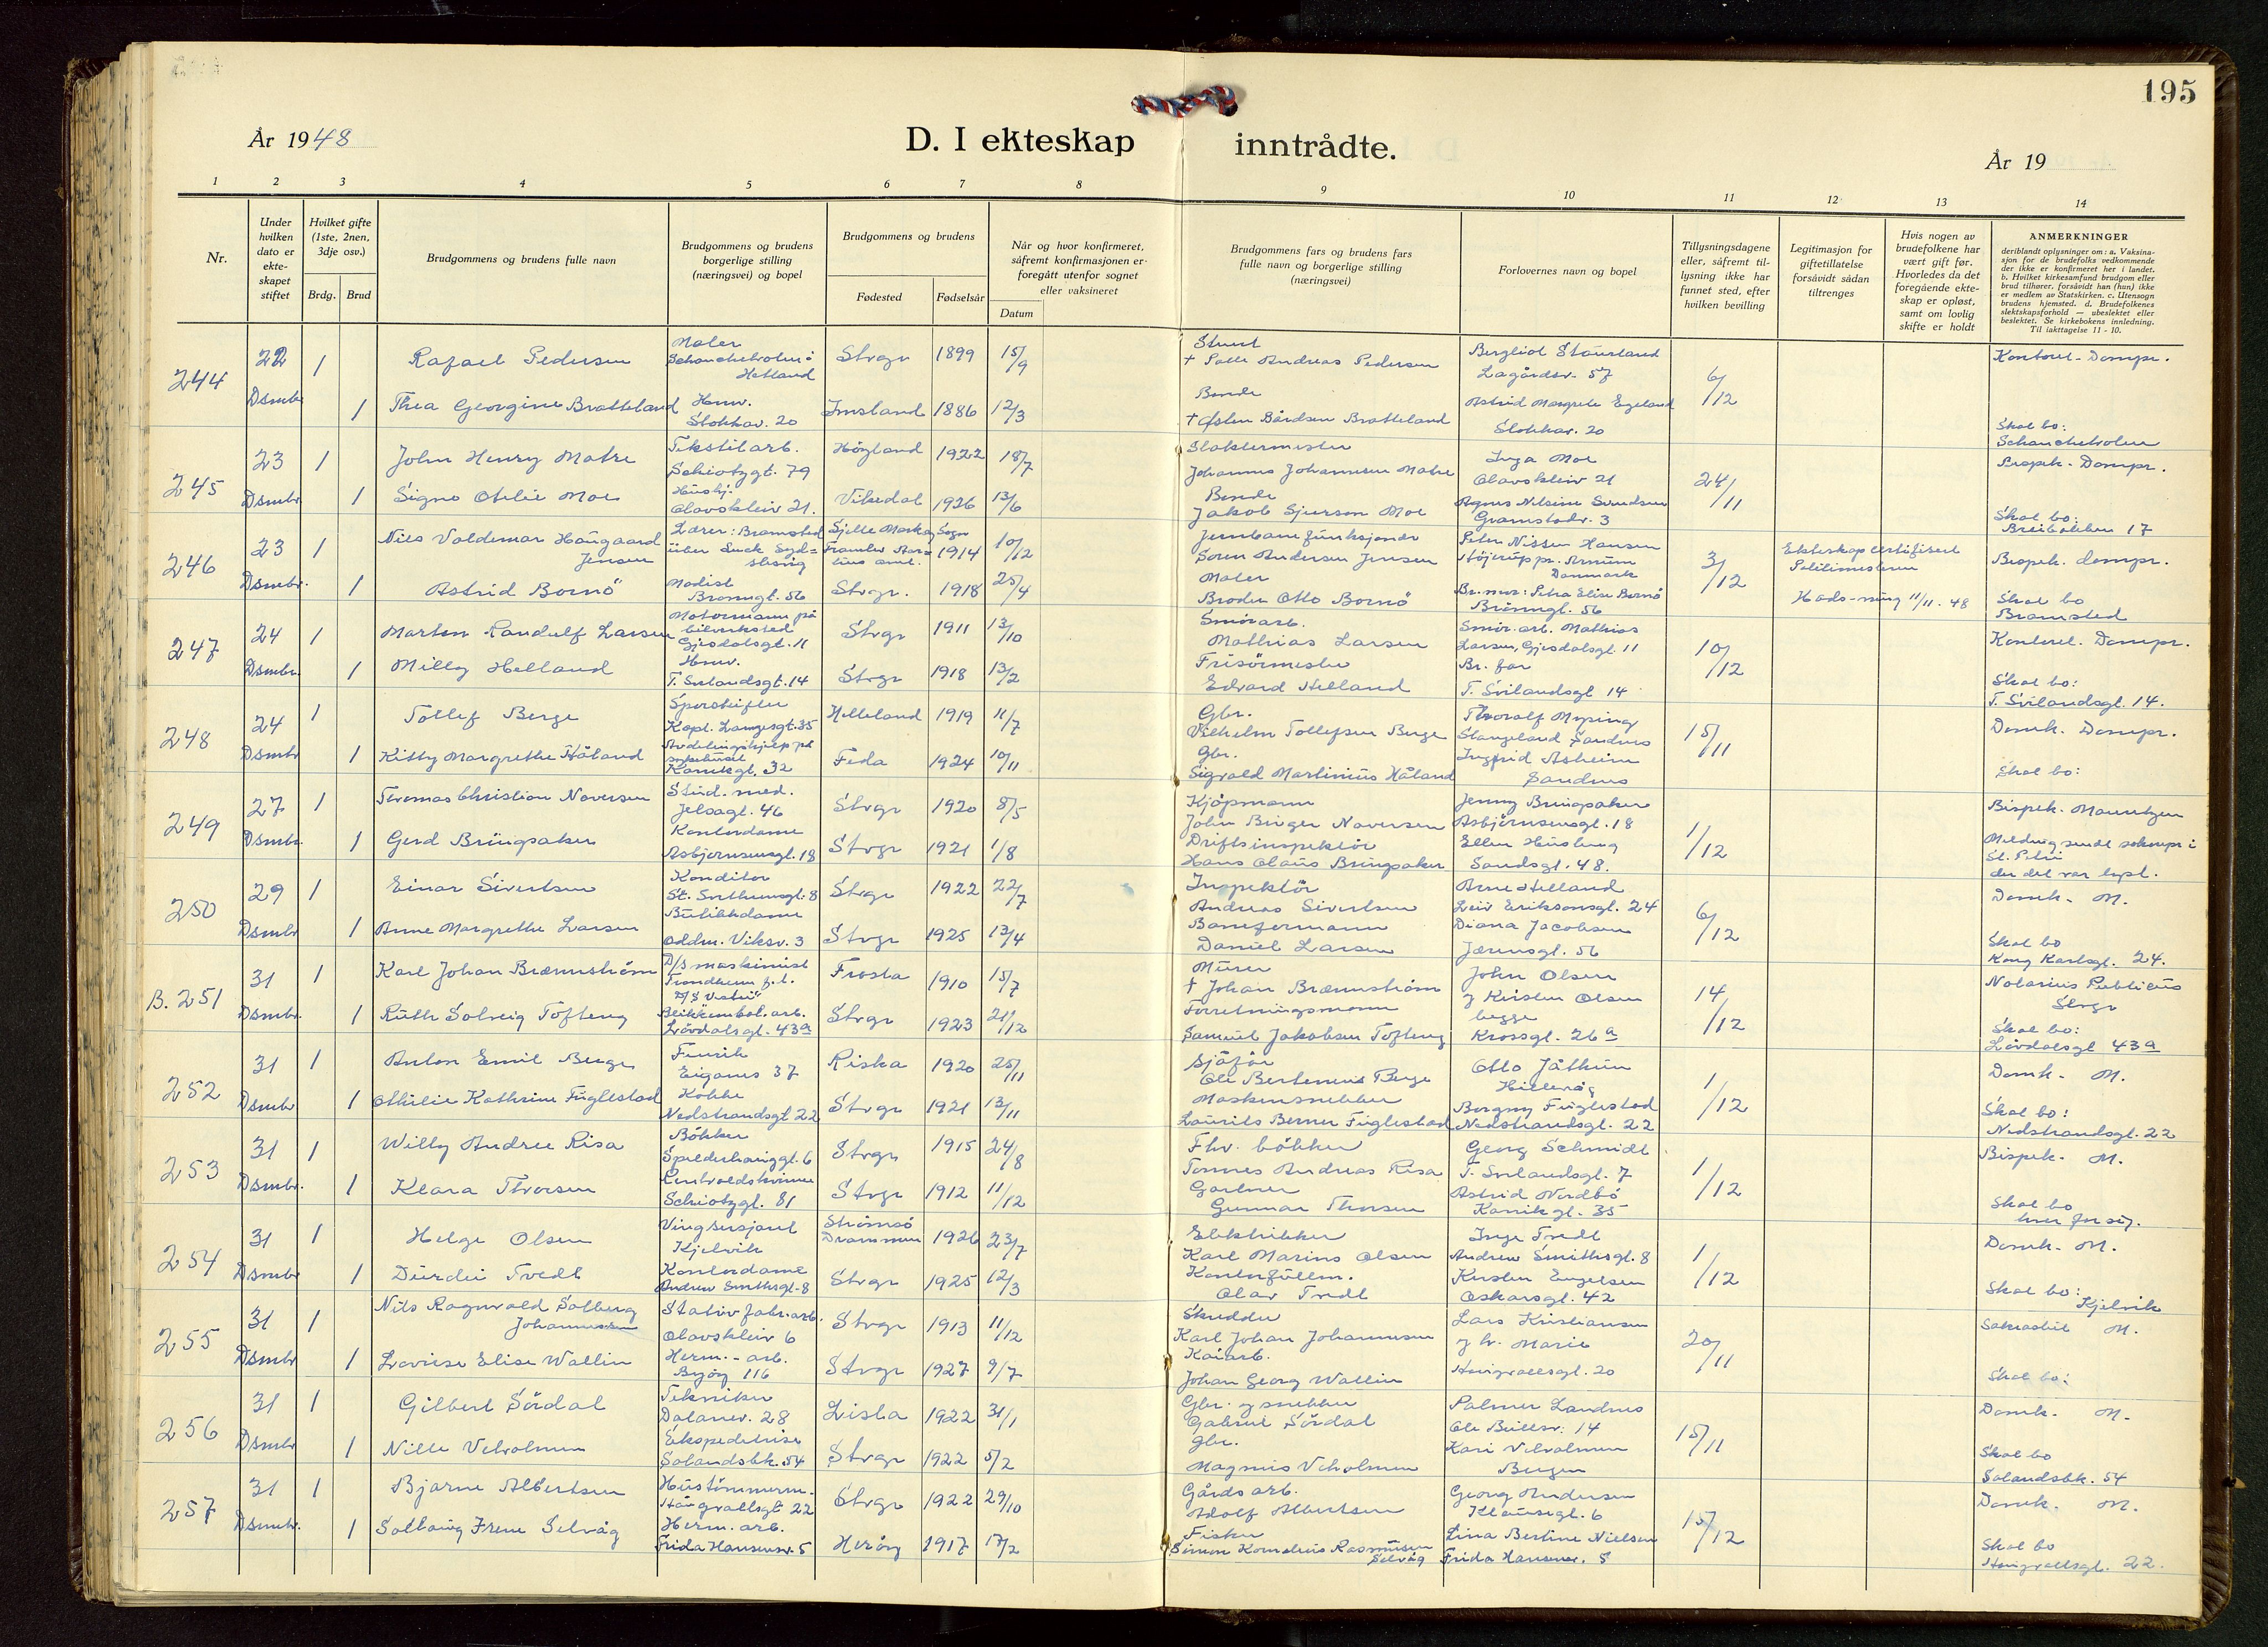 195
År 1948
D. I ekteskap inntrådte.
År 19
1 2 3 4 5 6 7 8 9 10 11 12 13 14
Nr.
Under hvilken dato er ekteskapet stiftet
Hvilket gifte (1ste, 2nen, 3dje osv.)
Brdg. Brud
Brudgommens og brudens fulle navn
Brudgommens og brudens borgerlige stilling (næringsvei) og bopel
Brudgommens og brudens
Fødested Fødselsår
Når og hvor konfirmeret, såfremt konfirmasjonen er foregått utenfor sognet eller vaksineret
Datum
Brudgommens fars og brudens fars fulle navn og borgerlige stilling (næringsvei)
Forlovernes navn og bopel
Tillysningsdagene eller, såfremt tillysning ikke har funnet sted, efter hvilken bevilling
Legitimasjon for giftetillatelse forsåvidt sådan tiltrenges
Hvis nogen av brudefolkene har vært gift før. Hvorledes da det foregående ekteskap er opløst, samt om lovlig skifte er holdt
ANMERKNINGER
deriblandt oplysninger om: a. Vaksinasjon for de brudefolks vedkommende der ikke er konfirmeret her i landet. b. Hvilket kirkesamfund brudgom eller brud tilhører, forsåvidt han (hun) ikke er medlem av Statskirken. c. Utensogn brudens hjemsted. d. Brudefolkenes slektskapsforhold — ubeslektet eller beslektet. Se kirkebokens innledning. Til iakttagelse 11 - 10.
244 22 Dsmbr 1 Rafael Pedersen Maler Hetland Strgr 1899 15/9 + Salle Andreas Pedersen Lagårdsv. 57 6/12
1 Thea Georgine Bratteland Hmv. Stokkav. 20 Imsland 1886 12/3 Bonde + Østen Bårdsen Bratteland Astrid Margrete Egeland Stokkav. 20 Skal bo:
245 23 Dsmbr 1 John Henry Matre Tekstilarb. Schiøtzgt. 79 Høyland 1922 18/7 Slaktermester Johannes Johannesen Matre Inga Moe Olavskleiv 21 24/11 Bispek. Dompr.
1 Signe Otelie Moe Hushj. Olavskleiv 21. Vikedal 1926 13/6 Bonde Jakob Sjurson Moe Agnes Nilsine Svendsen Gramstadv. 3 Skal bo: Breibakken 17
246 23 Dsmbr. 1 Nils Valdemar Haugaard Jensen Lærer: Bramsted 1914 10/12 Jernbanefunksjonær Søren Andersen Jensen Peter Nissen Hansen Højerup pr. Arnum Danmark 3/12 Ekteskapscertifisert Politimesteren 11/11. 48 Bispek. dompr.
1 Astrid Bornø Modist Brønngt. 56 Strgr. 1918 25/4 Maler Broder Otto Bornø Br. mor: Petra Elise Bornø Brønngt. 56 Skal bo Bramsted
247 24 Dsmbr. 1 Marten Randulf Larsen Motormann på bilverksted Gjesdalsgt. 11 Strgr 1911 13/10 Smørarb. Mathias Larsen Smør.arb. Mathias Larsen, Gjesdalsgt. 11 10/12 Dompr.
1 Milly Helland Hmv. T. Svilandsgt. 14 Strgr 1918 13/2 Frisørmester Edvard Helland Br. far T. Svilandsgt 14 Skal bo: T. Svilandsgt. 14.
248 24 Dsmbr 1 Tollef Berge Sporskifter Kapt. Langesgt. 35 Helleland 1919 11/7 Gbr. Vilhelm Tollefsen Berge Thoralf Myning Stangeland Sandnes 15/11 Domk. Dompr.
1 Kitty Margrethe Håland Avdelingshjelp på sykehuset Kannikgt. 32 Feda 1924 10/11 Gbr. Sigvald Martinius Håland Ingfrid Asheim Sandnes Skal bo:
249 27 Dsmbr. 1 Thomas Christian Naversen Stud. med. Jelsagt. 46 Strgr 1920 8/5 Kjøpmann John Birger Naversen Jenny Bringsaker Asbjørnsensgt. 18 1/12 Bispek.
1 Gerd Bringsaker Kontordame Asbjørnsensgt. 18 Strgr 1921 1/8 Driftsinspektør Hans Olaus Bringsaker Sandsgt. 48. Melding sendt sokнepr i St. Petri
250 29 Dsmbr 1 Einar Sivertsen Konditor Strgr 1922 22/7 Inspektør Andreas Sivertsen Arne Helland Leiv Eriksonsgt. 24 6/12 Domk. M.
1 Anne Margrethe Larsen Butikkdame Oddm. Viksv. 3 Strgr 1925 13/4 Baneformann Daniel Larsen Diana Jacobsen Jærensgt. 56 Skal bo Kong Karlsgt. 24.
B. 251 31 Dsmbr. 1 Karl Johan Brænnstrøm D/S maskinist Trondheim Frosta 1910 15/7 Murer + Johan Brænnstrøm John Olsen og Kirsten Olsen begge Krossgt. 26a 14/12 Notarius Publicus Strgr
1 Ruth Solveig Tofteng Løvdalsgt. 43a Strgr 1923 21/12 Forretningsmann Samuel Jakobsen Tofteng Skal bo: Løvdalsgt 43a
252 31 Dsmbr 1 Anton Emil Berge Fenrik Eiganes 37 Riska 1920 25/11 Sjåfør Ole Berteneus Berge Otto Jåtten Hillevåg 1/12 Domk. M.
1 Othilie Kathrine Fuglestad Kokke Nedstrandsgt 22 Strgr 1921 13/11 Maskinsnekker Laurits Berner Fuglestad Borgny Fuglestad Nedstrandsgt. 22 Skal bo: Nedstrandsgt. 22
253 31 Dsmbr. 1 Willy Andree Risa Bøkker Spilderhauggt. 6 Strgr 1915 24/8 Fhv. bøkker Tonnes Andreas Risa Georg Schmidt T. Svilandsgt. 7 1/12 Bispek. M.
1 Klara Thorsen Schiøtzgt. 81 Strgr 1912 11/12 Gartner Gunnar Thorsen Astrid Nordbø Kannikgt. 35 Skal bo hver for sig.
254 31 Dsmbr 1 Helge Olsen Vingsersjant Kjelvik Strømsø Drammen 1926 23/7 Elektriker Karl Marius Olsen Inge Tvedt Andrew Smithsgt. 8 1/12 Domk. M.
1 Durdei Tvedt Kontordame Andrew Smithsgt. 8 Strgr 1925 12/3 Kontorfullm. Olav Tvedt Kirsten Engelsen Oskarsgt. 42 Skal bo: Kjelvik
255 31 Dsmbr 1 Nils Ragnvald Solberg Johannessen Stativfabr.arb. Olavskleiv 6 Strgr 1913 11/12 Skredder Karl Johan Johannesen Lars Kristiansen og hr. Marie Haugvallsgt. 20 20/11 M.
1 Lovise Elise Wallin Herm.-arb. Byøy 116 Strgr 1927 9/7 Kaiarb. Johan Georg Wallin Skal bo:
256 31 Dsmbr 1 Gilbert Sørdal Tekniker Dalanev. 28 Lista 1922 31/1 Gbr. og snekker Gabriel Sørdal Palmer Landnes Ole Bullsv. 14 15/11 Domk. M.
1 Nille Veholmen Ekspeditrise Solandsbk. 54 Strgr 1922 5/2 Gbr. Magnus Veholmen Kari Veholmen Bergen Skal bo Solandsbk. 54
257 31 Dsmbr. 1 Bjarne Albertsen Hustømmerm. Haugvallsgt 22 Strgr 1922 29/10 Gårdsarb. Adolf Albertsen Georg Andersen Klausegt. 6 15/12 Domk. M.
1 Solbaug Irene Selvåg Herm. arb. Frida Hansensv. 5 Herøy 1917 17/2 Fisker Simon Kornelius Rasmussen Selvåg Lina Bertine Nielsen Frida Hansensv. 5 Skal bo Haugvallsgt. 22.